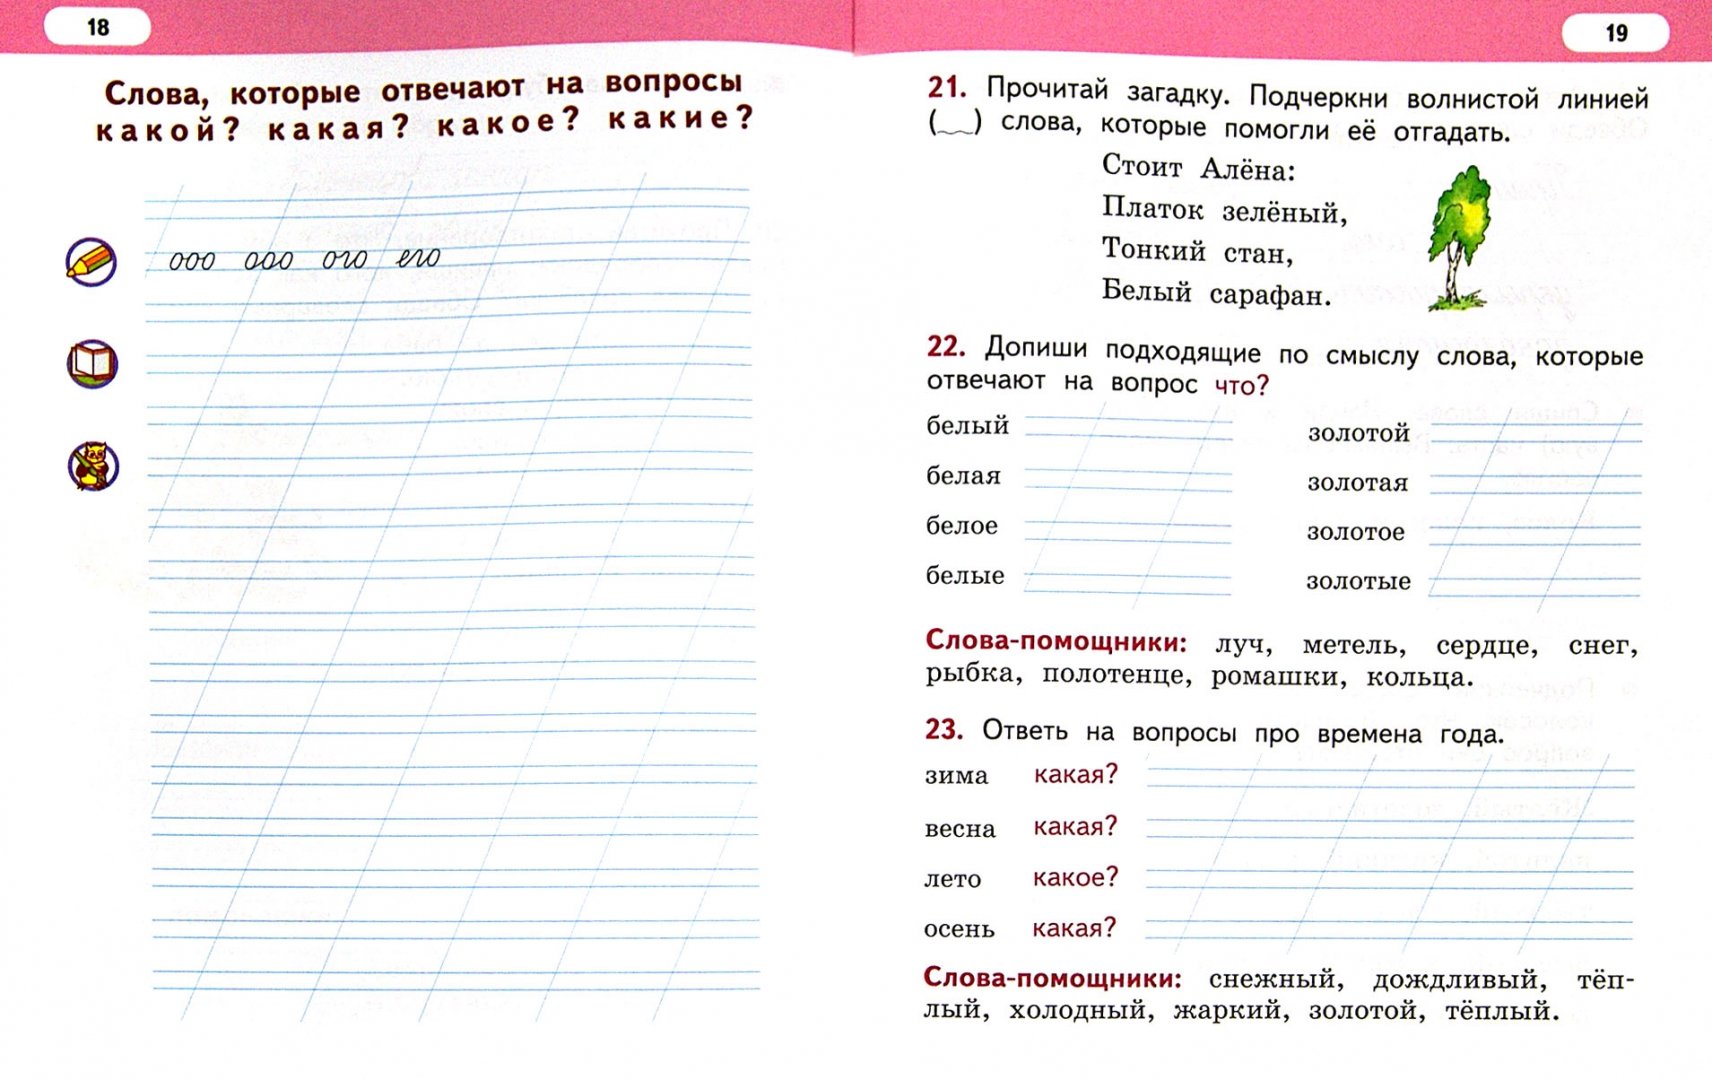 18
Слова, которые отвечают на вопросы
какой? какая? какое? какие?
ооо ооо ого его
19
21. Прочитай загадку. Подчеркни волнистой линией
(﹏) слова, которые помогли её отгадать.
Стоит Алёна:
Платок зелёный,
Тонкий стан,
Белый сарафан.
22. Допиши подходящие по смыслу слова, которые
отвечают на вопрос что?
белый
белая
белое
белые
золотой
золотая
золотое
золотые
Слова-помощники: луч, метель, сердце, снег,
рыбка, полотенце, ромашки, кольца.
23. Ответь на вопросы про времена года.
зима какая?
весна какая?
лето какое?
осень какая?
Слова-помощники: снежный, дождливый, тёп-
лый, холодный, жаркий, золотой, тёплый.